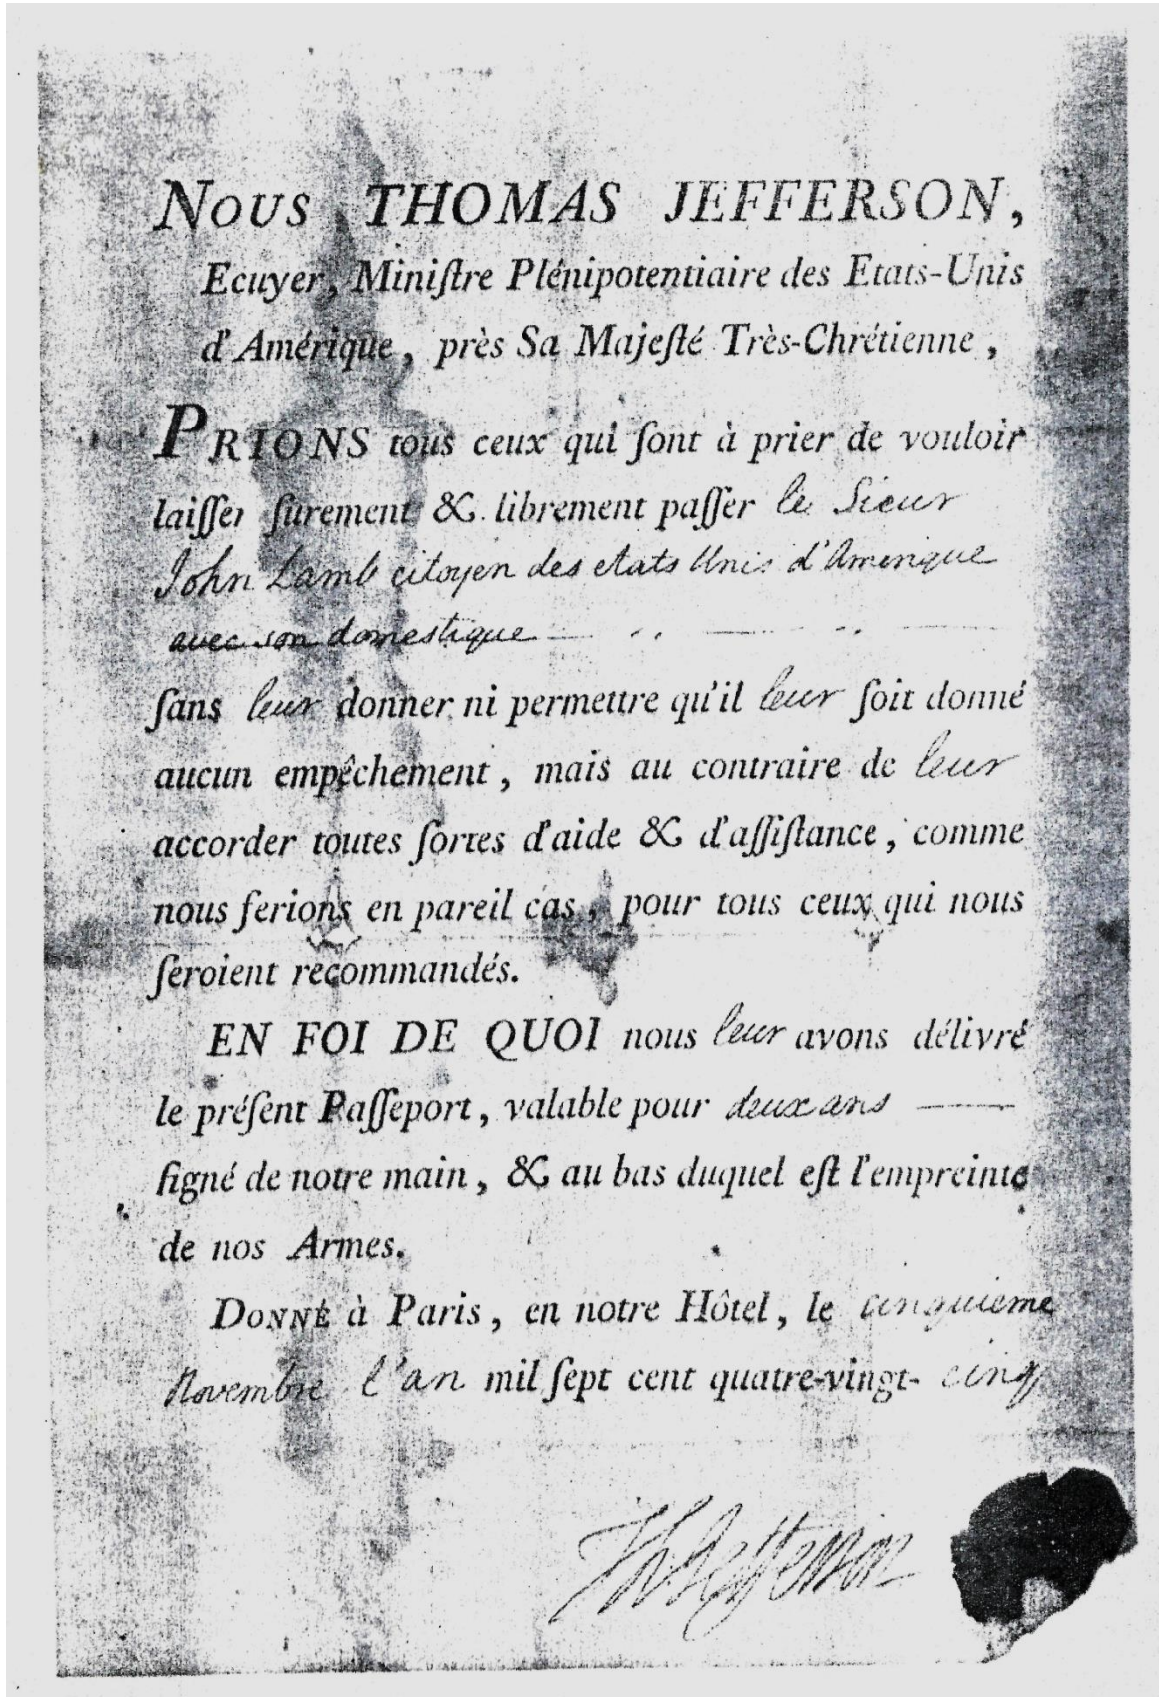 NOUS THOMAS JEFFERSON,
Ecuyer, Miniſtre Plénipotentiaire des Etats-Unis
d'Amérique, près Sa Majeſté Très-Chrétienne,
PRIONS tous ceux qui ſont à prier de vouloir
laiſſer ſurement & librement paſſer le Sieur
John Lamb citoyen des etats Unis d'Amerique
avec son domestique
ſans leur donner ni permettre qu'il leur ſoit donné
aucun empêchement, mais au contraire de leur
accorder toutes ſortes d'aide & d'aſſiſtance, comme
nous ferions en pareil cas, pour tous ceux qui nous
ſeroient recommandés.
EN FOI DE QUOI nous leur avons délivré
le préſent Paſſeport, valable pour deux ans
ſigné de notre main, & au bas duquel eſt l'empreinte
de nos Armes.
DONNÉ à Paris, en notre Hôtel, le cinquieme
Novembre l'an mil ſept cent quatre-vingt-cinq
Th Jefferson